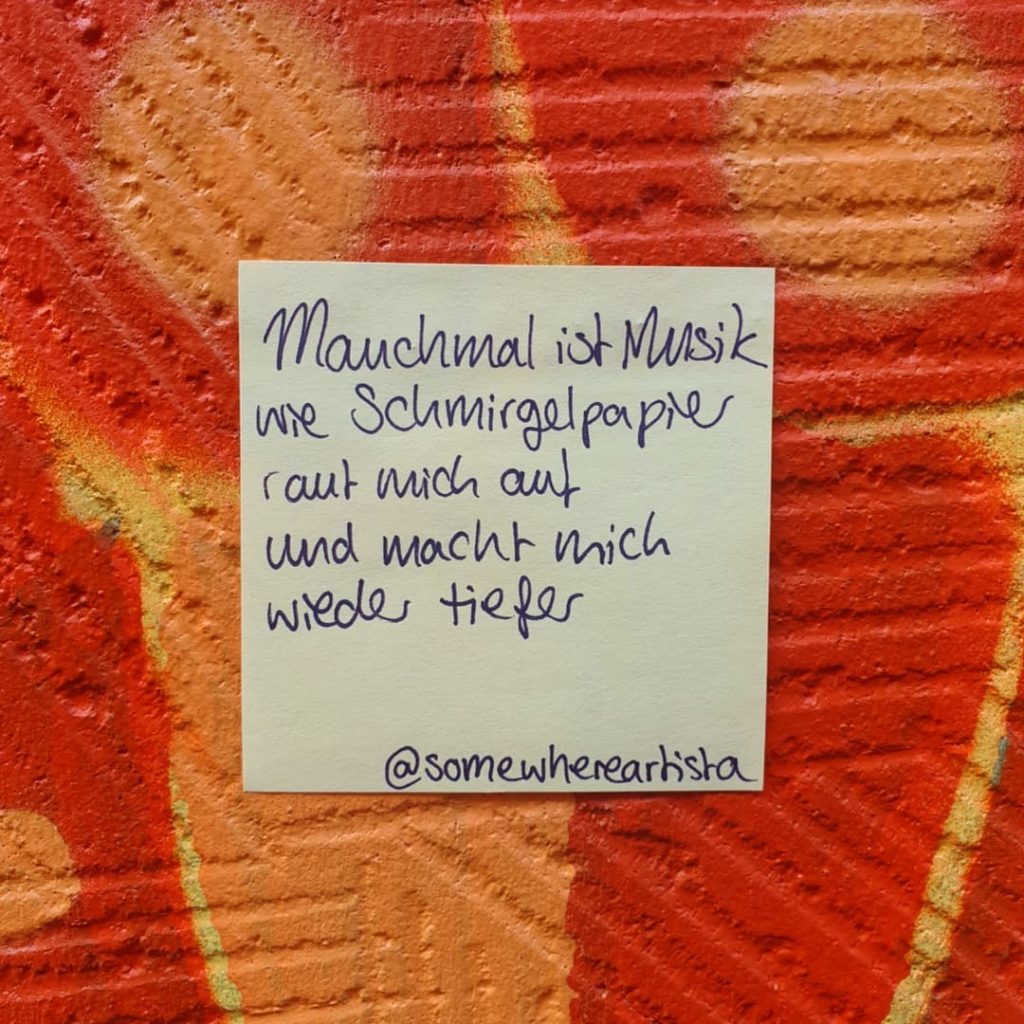 Manchmal ist Musik
wie Schmirgelpapier
raut mich auf
und macht mich
wieder tiefer
@somewhereartista